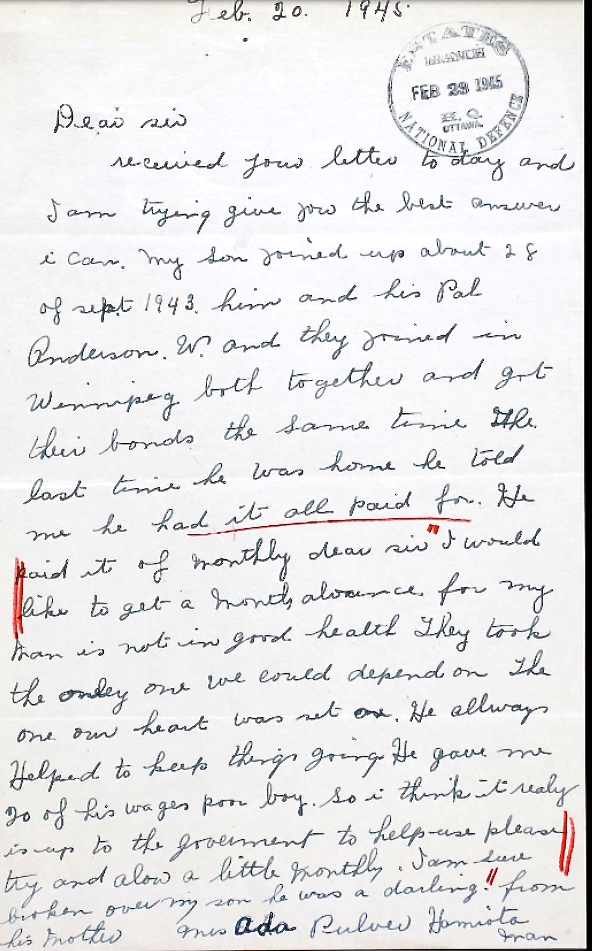 Feb. 20. 1945
ESTATES
BRANCH
FEB 23 1945
H.Q.
OTTAWA
NATIONAL DEFENCE
Dear sir
received your letter to day and
I am trying give you the best answer
i can. my son joined up about 28
of sept 1943. him and his Pal
Anderson. W. and they joined in
Winnipeg both together and got
their bonds the same time The
last time he was home he told
me he had it all paid for. He
paid it of monthly dear sir "I would
like to get a month alowence for my
man is not in good health They took
the onley one we could depend on The
one our heart was set on. He allways
Helped to keep things going He gave me
20 of his wages poor boy. so i think it realy
is up to the goverment to help use please
try and alow a little monthly. I am sure
broken over my son he was a darling." from
his Mother Mrs Ada Pulver Hamiota
Man